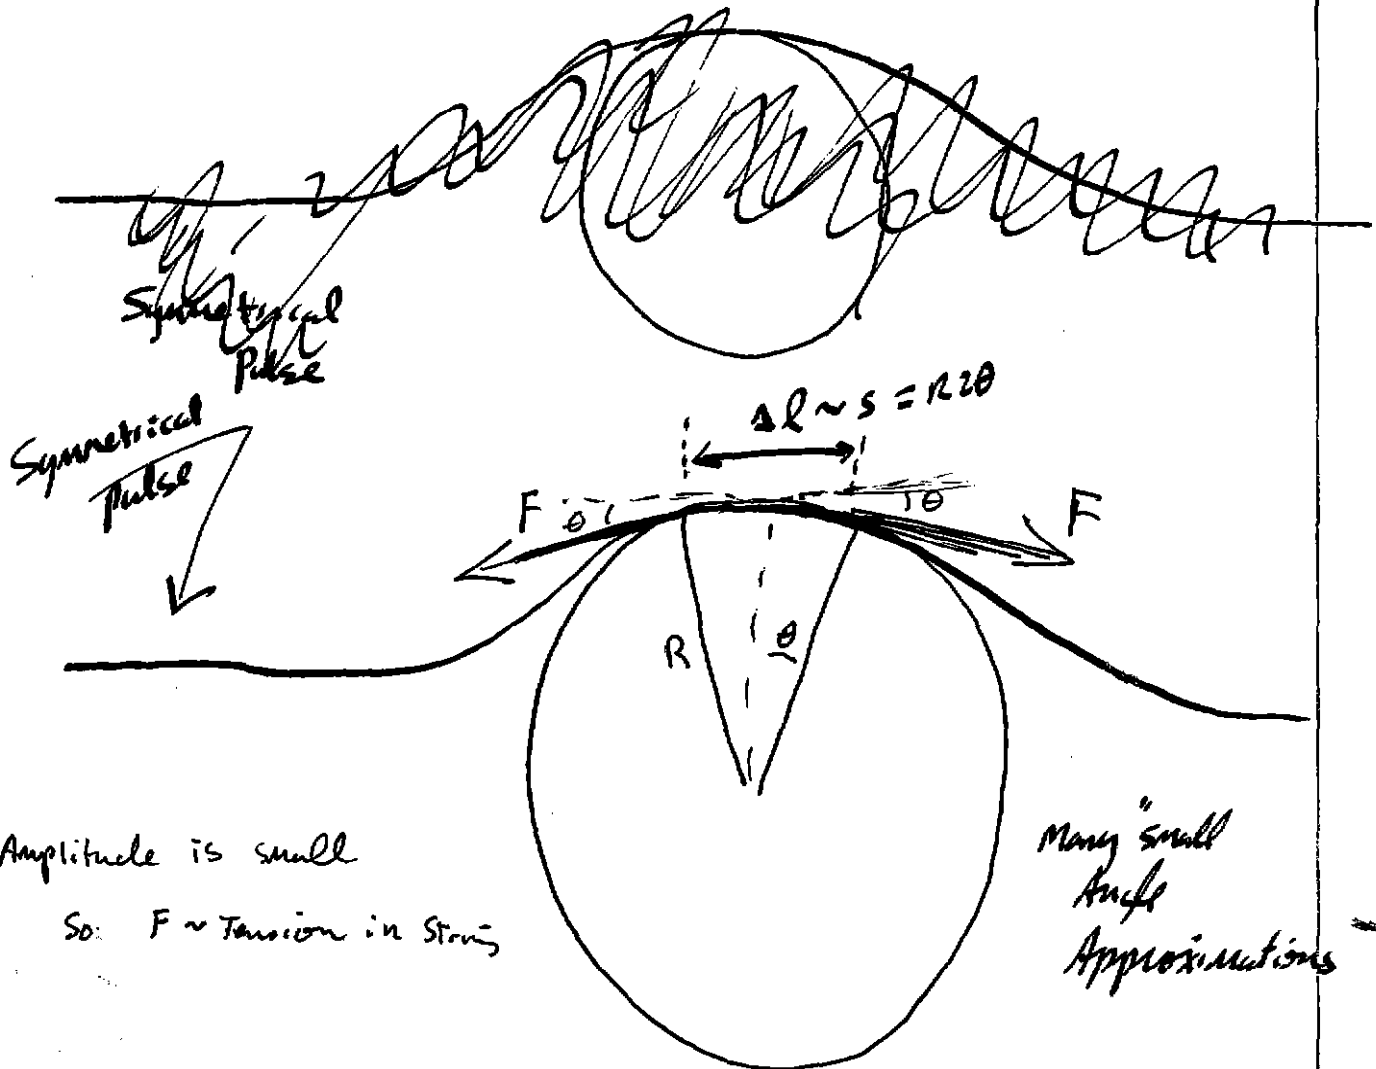 Symmetrical
Pulse
Δl ~ s = R2θ
Symmetrical
Pulse
F θ
θ F
R θ
Amplitude is small
So: F ~ Tension in String
Many "small
Angle
Approximations